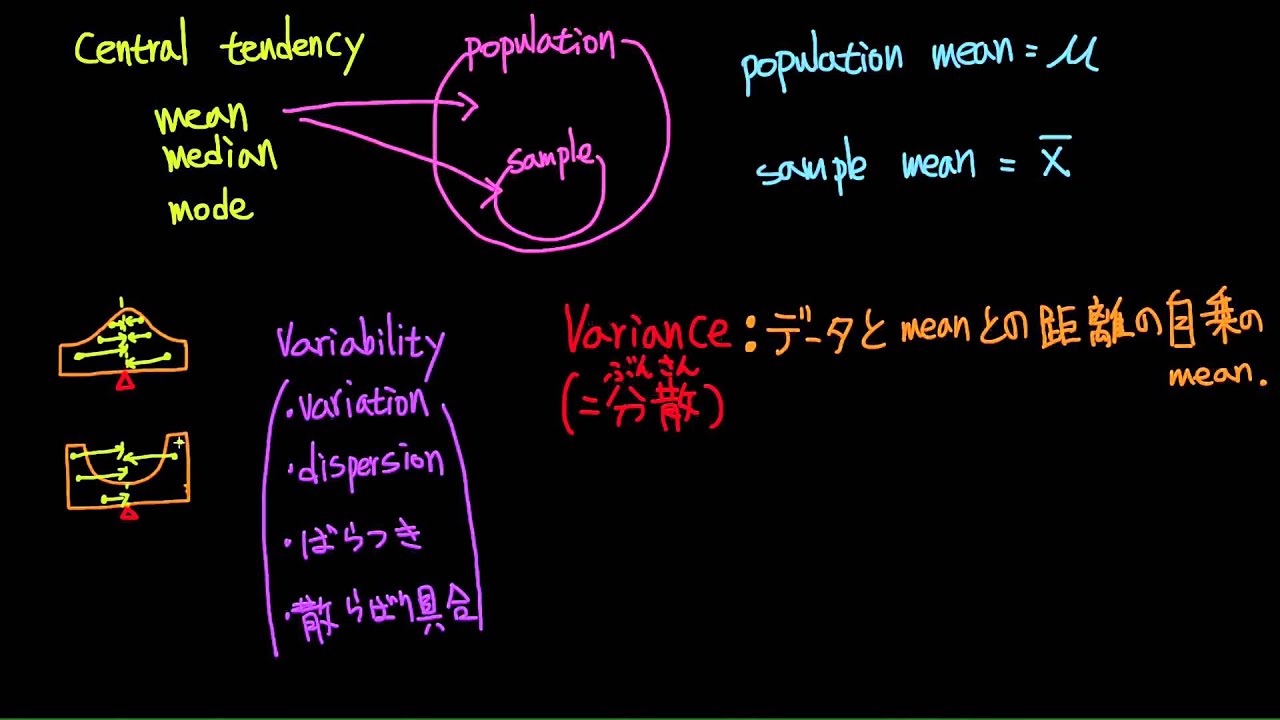 Central tendency
mean
median
mode
population
sample
population mean = μ
sample mean = x̄
Variability
・variation
・dispersion
・ばらつき
・散らばり具合
Variance：データとmeanとの距離の自乗の
mean.
ぶんさん
(=分散)